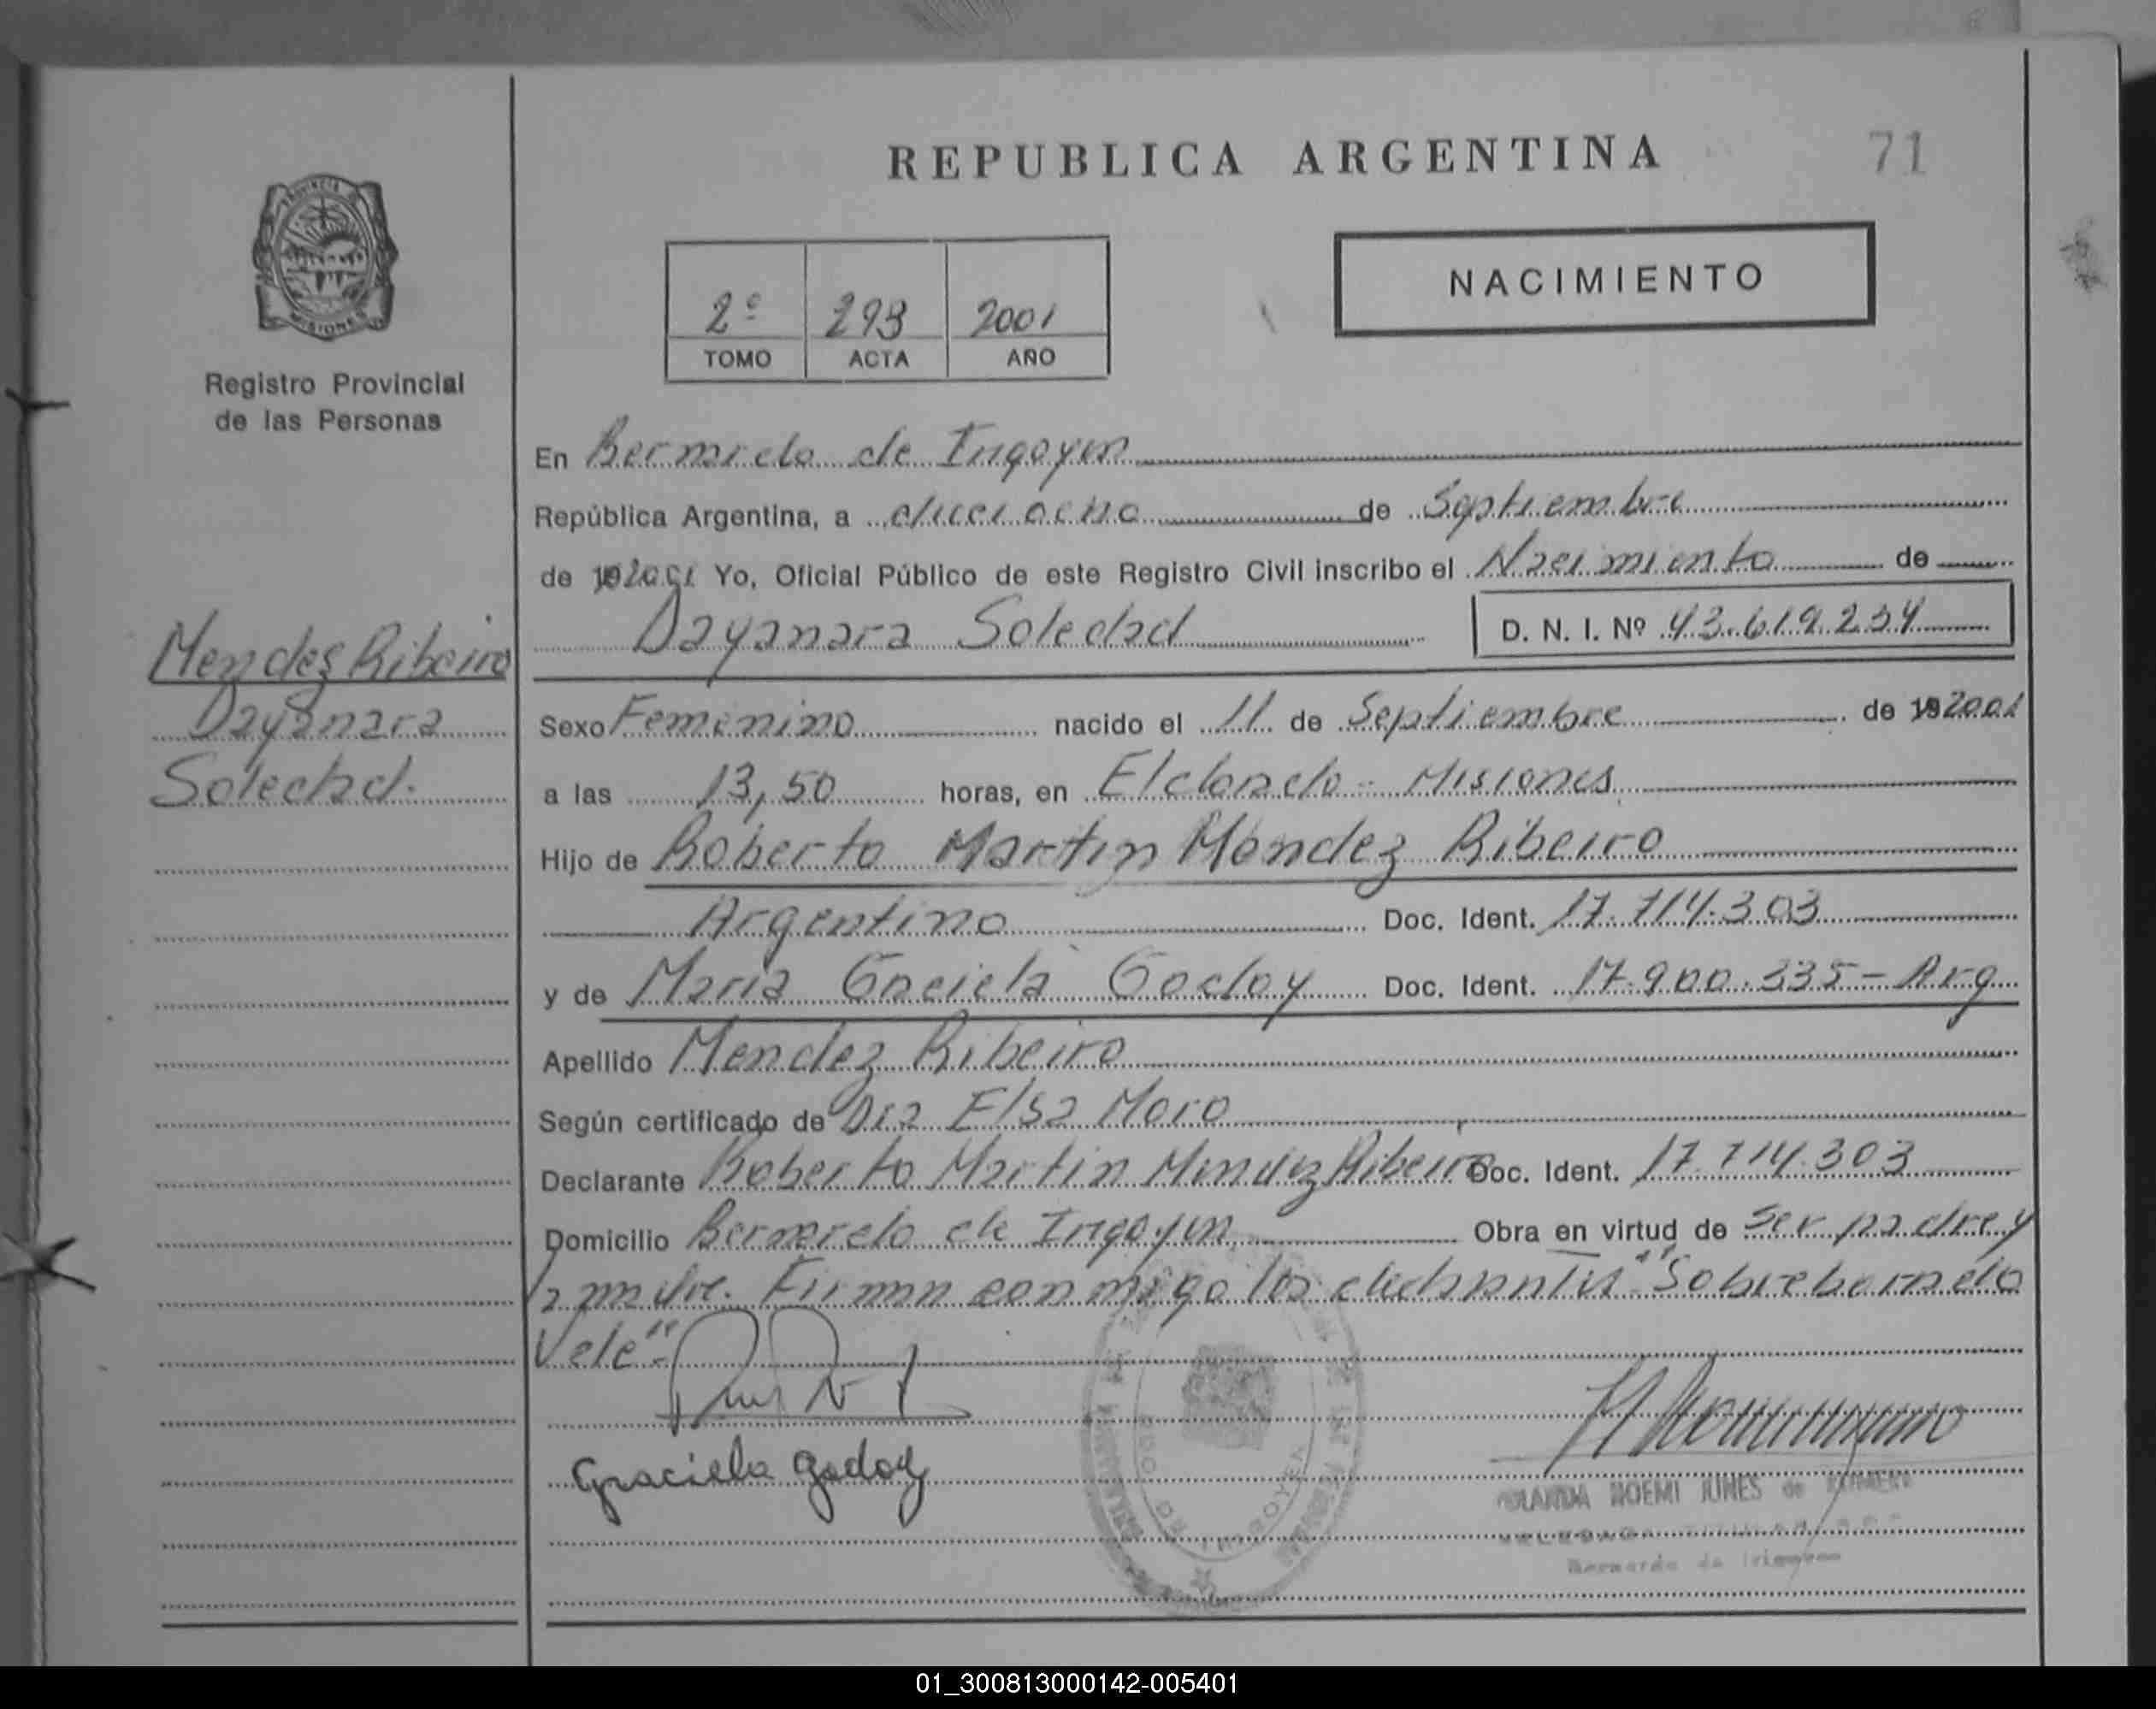 REPUBLICA ARGENTINA
71
PROVINCIA
MISIONES
Registro Provincial
de las Personas
2º 293 2001
TOMO ACTA AÑO
NACIMIENTO
En Bernardo de Irigoyen
República Argentina, a dieciocho de Septiembre
de 192001 Yo, Oficial Público de este Registro Civil inscribo el Nacimiento de
Dayanara Soledad D. N. I. Nº 43.619.234
Mendes Ribeiro
Dayanara
Soledad.
Sexo Femenino nacido el 11 de Septiembre de 192001
a las 13,50 horas, en Eldorado - Misiones
Hijo de Roberto Martin Méndez Ribeiro
Argentino Doc. Ident. 17.714.303
y de Maria Graciela Godoy Doc. Ident. 17.900.335 - Arg
Apellido Mendez Ribeiro
Según certificado de Dra Elsa Moro
Declarante Roberto Martin Mendez Ribeiro Doc. Ident. 17.714.303
Domicilio Bernardo de Irigoyen Obra en virtud de ser padre y
la madre. Firman conmigo los declarantes "Sobreborrado
Vele"
Graciela Godoy
NOEMI JUNES de ROMERO
Bernardo de Irigoyen
01_300813000142-005401